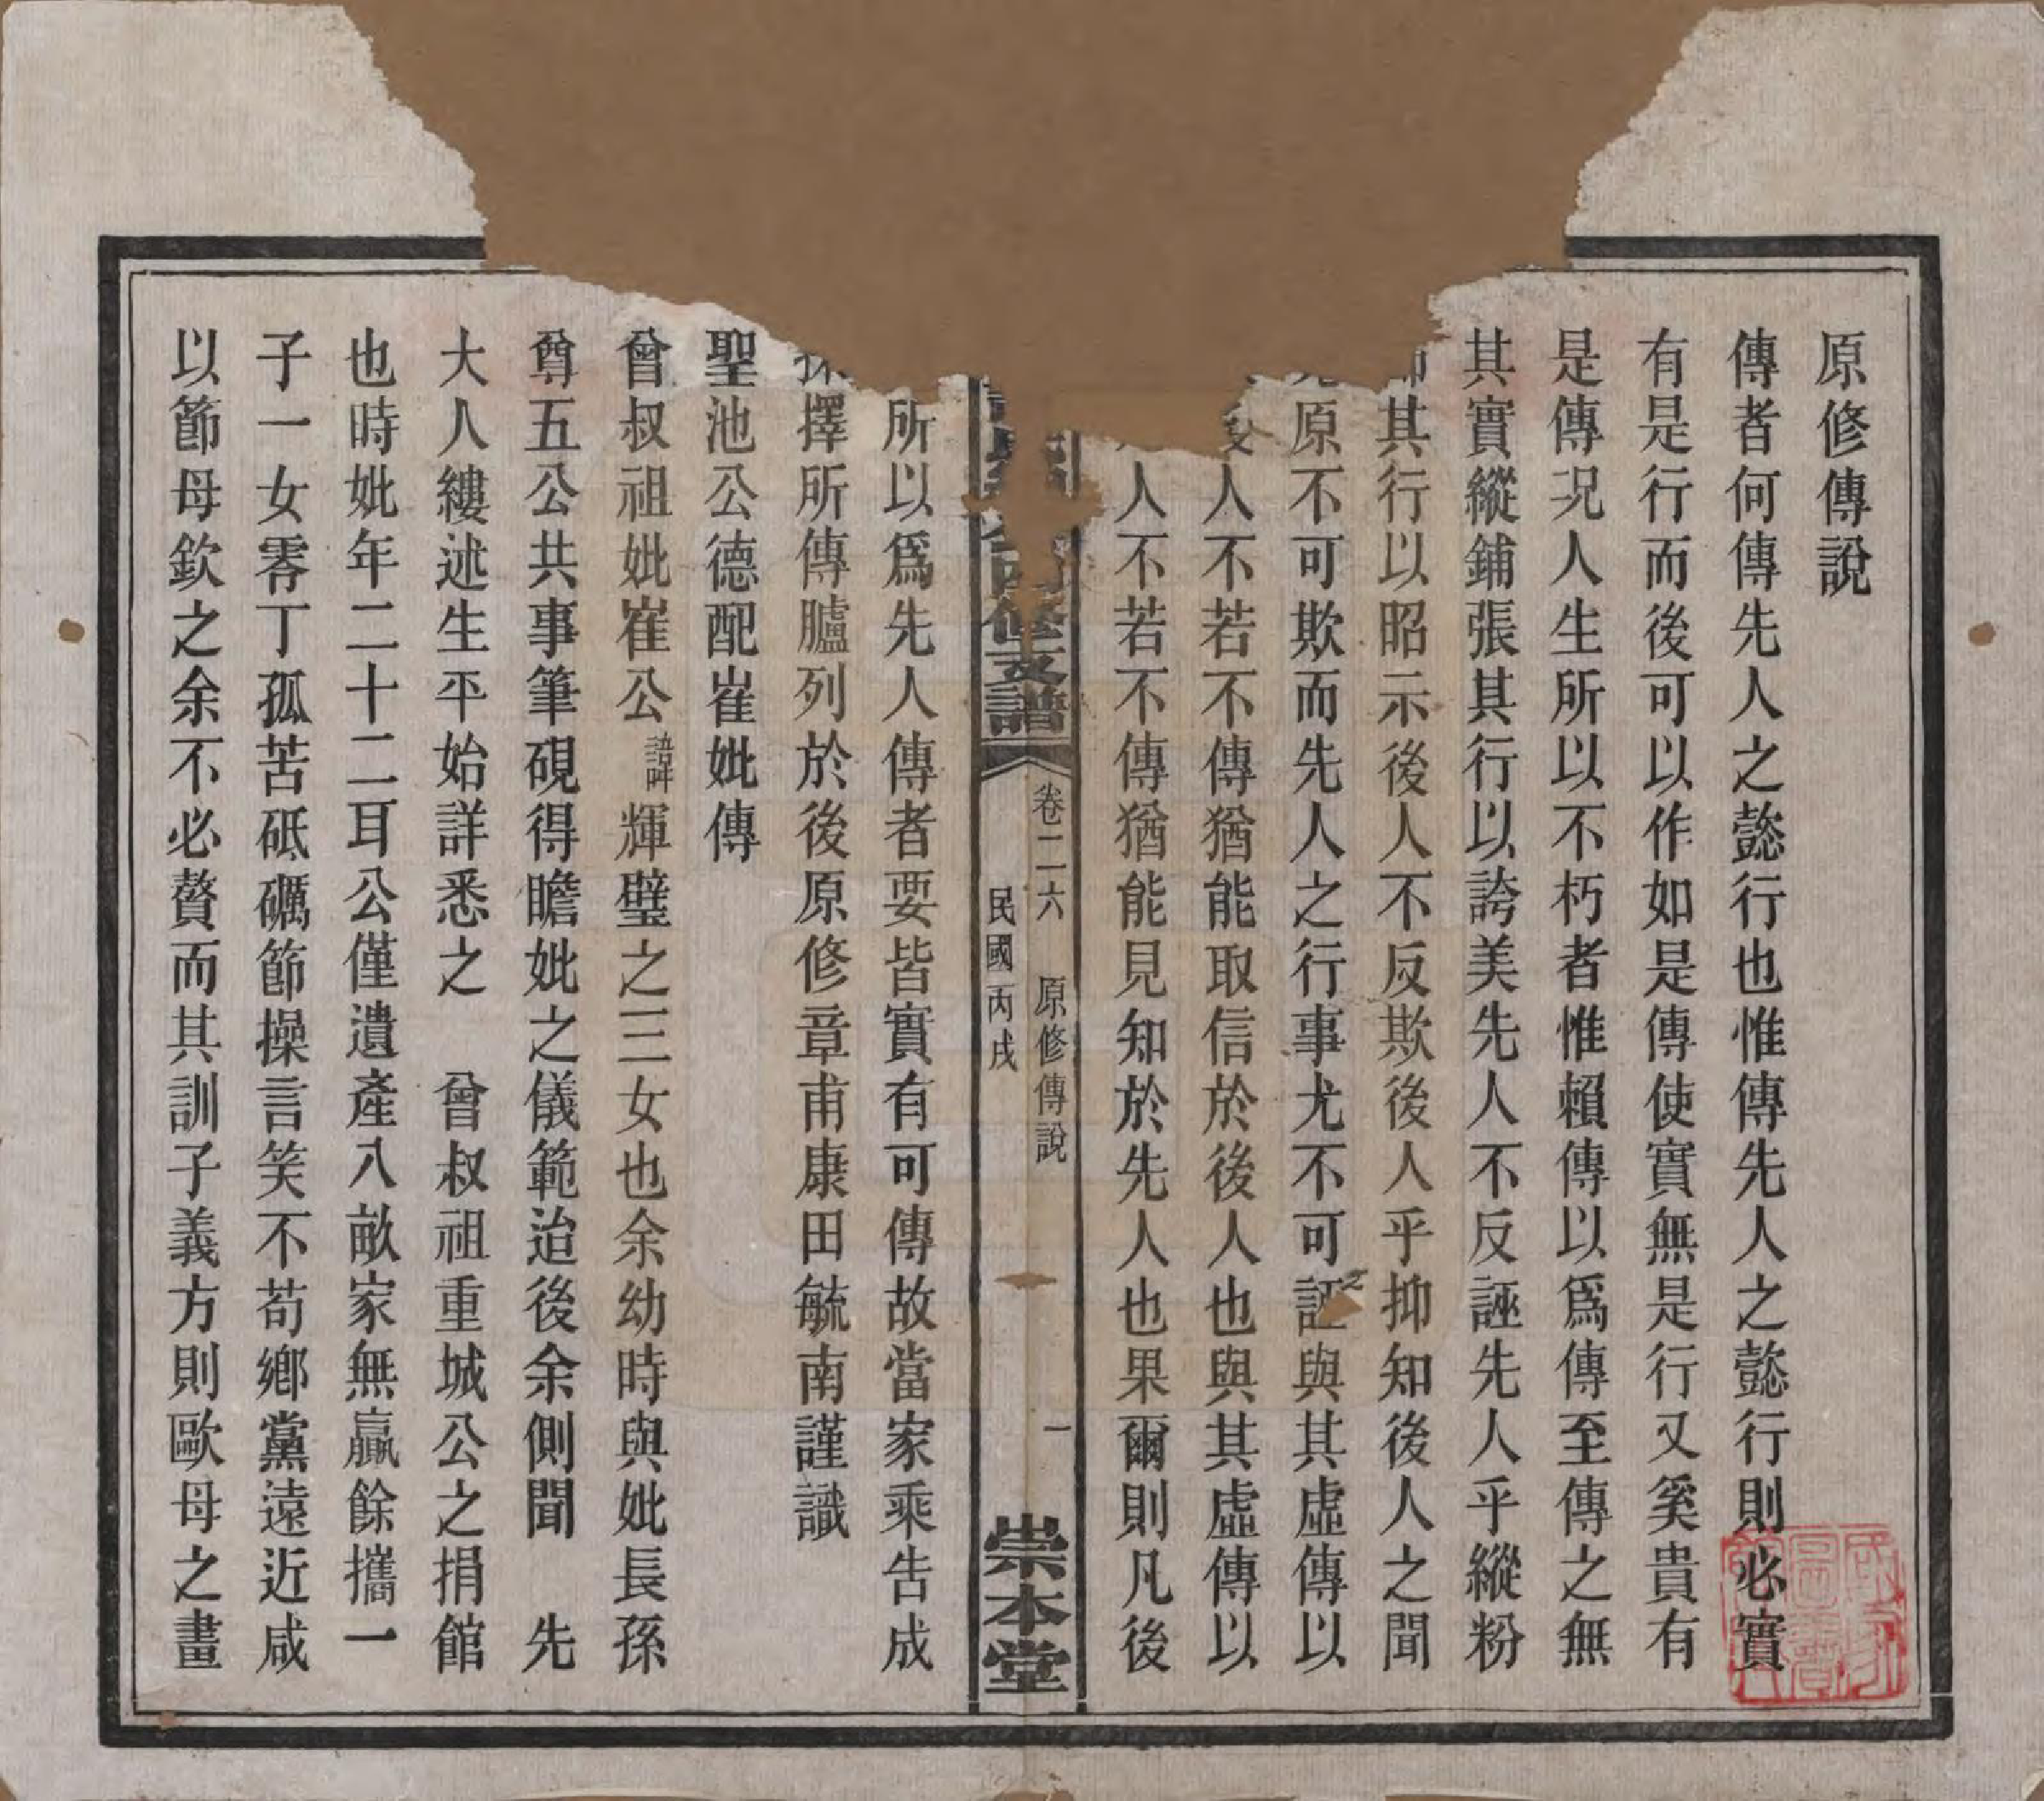 原修傳說
傳者何傳先人之懿行也惟傳先人之懿行則必實
有是行而後可以作如是傳使實無是行又奚貴有
是傳況人生所以不朽者惟賴傳以爲傳至傳之無
其實縱鋪張其行以誇美先人不反誣先人乎縱粉
其行以昭示後人不反欺後人乎抑知後人之聞
原不可欺而先人之行事尤不可誣與其虛傳以
人不若不傳猶能取信於後人也與其虛傳以
人不若不傳猶能見知於先人也果爾則凡後
修支譜
卷二六 原修傳說 一
民國丙戌
崇本堂
所以爲先人傳者要皆實有可傳故當家乘告成
擇所傳臚列於後原修章甫康田毓南謹識
聖池公德配崔妣傳
曾叔祖妣崔公諱輝璧之三女也余幼時與妣長孫
尊五公共事筆硯得瞻妣之儀範迨後余側聞 先
大人縷述生平始詳悉之 曾叔祖重城公之捐館
也時妣年二十二耳公僅遺產八畝家無贏餘攜一
子一女零丁孤苦砥礪節操言笑不苟鄉黨遠近咸
以節母欽之余不必贅而其訓子義方則歐母之畫